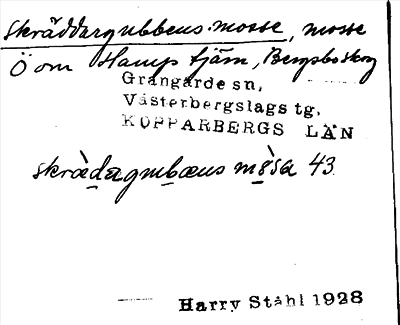 Skräddargubbens mosse, mosse
Ö om Hamptjärn, Bergsbo skog
Grangärde sn,
Västerbergslags tg,
KOPPARBERGS LÄN
skrædagubæns mosa 43.
Harry Ståhl 1928